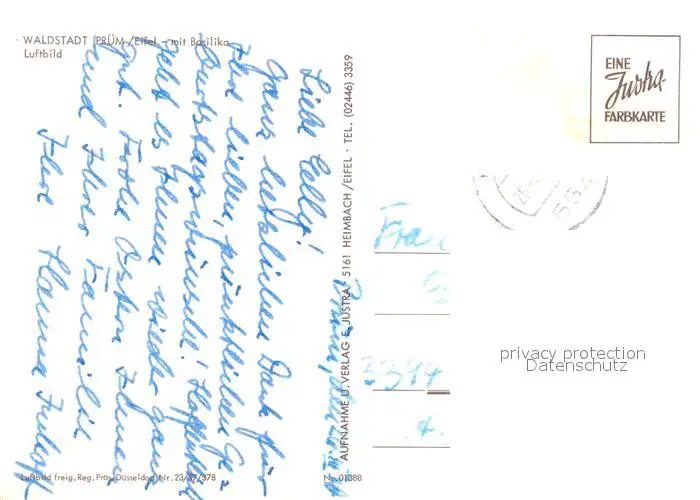 WALDSTADT PRÜM/Eifel - mit Basilika
Luftbild
EINE
Justra-
FARBKARTE
AUFNAHME U. VERLAG E. JUSTRA · 5161 HEIMBACH/EIFEL · TEL. (02446) 3359
Liebe Celly!
ganz herzlichen Dank für
Ihre lieben, pünktlichen Ge=
burtstagswünsche! Hoffentlich
geht es Ihnen wieder ganz
gut. Frohe Ostern Ihnen
und Ihrer Familie
Ihre Hanna
Frau
3394
privacy protection
Datenschutz
Luftbild freig. Reg. Präs. Düsseldorf Nr. 23/37/378
Nr. 01388